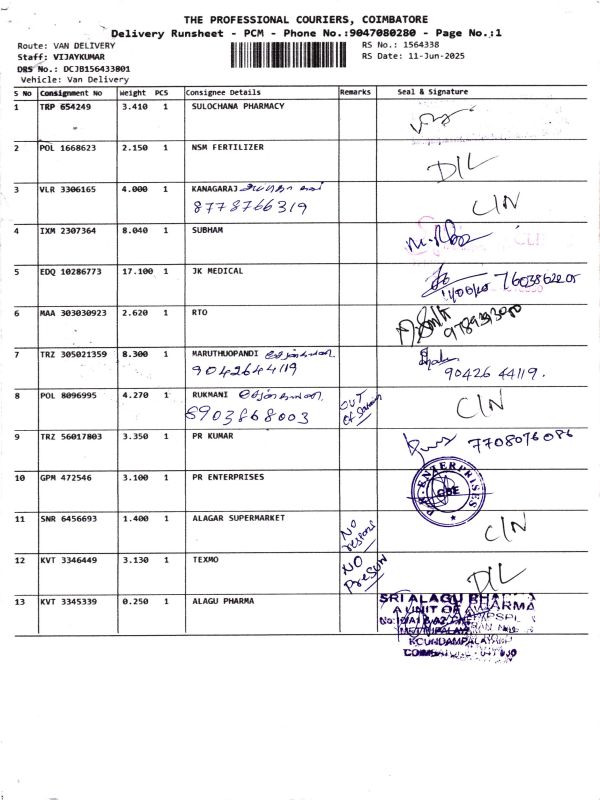 THE PROFESSIONAL COURIERS, COIMBATORE
Delivery Runsheet - PCM - Phone No.:9047080280 - Page No.:1
Route: VAN DELIVERY RS No.: 1564338
Staff: VIJAYKUMAR RS Date: 11-Jun-2025
DRS No.: DCJB156433801
Vehicle: Van Delivery
S No Consignment No Weight PCS Consignee Details Remarks Seal & Signature
1 TRP 654249 3.410 1 SULOCHANA PHARMACY
2 POL 1668623 2.150 1 NSM FERTILIZER DIL
3 VLR 3306165 4.000 1 KANAGARAJ CIN
8778766319
4 IXM 2307364 8.040 1 SUBHAM
5 EDQ 10286773 17.100 1 JK MEDICAL
6 MAA 303030923 2.620 1 RTO
7 TRZ 305021359 8.300 1 MARUTHUOPANDI
9042644119 90426 44119.
8 POL 8096995 4.270 1 RUKMANI OUT CIN
8903868003 of
9 TRZ 56017803 3.350 1 PR KUMAR 7708076086
10 GPM 472546 3.100 1 PR ENTERPRISES P.R. ENTERPRISES CBE
11 SNR 6456693 1.400 1 ALAGAR SUPERMARKET NO CIN
12 KVT 3346449 3.130 1 TEXMO NO DIL
13 KVT 3345339 0.250 1 ALAGU PHARMA SRI ALAGU PHARMA
A UNIT OF